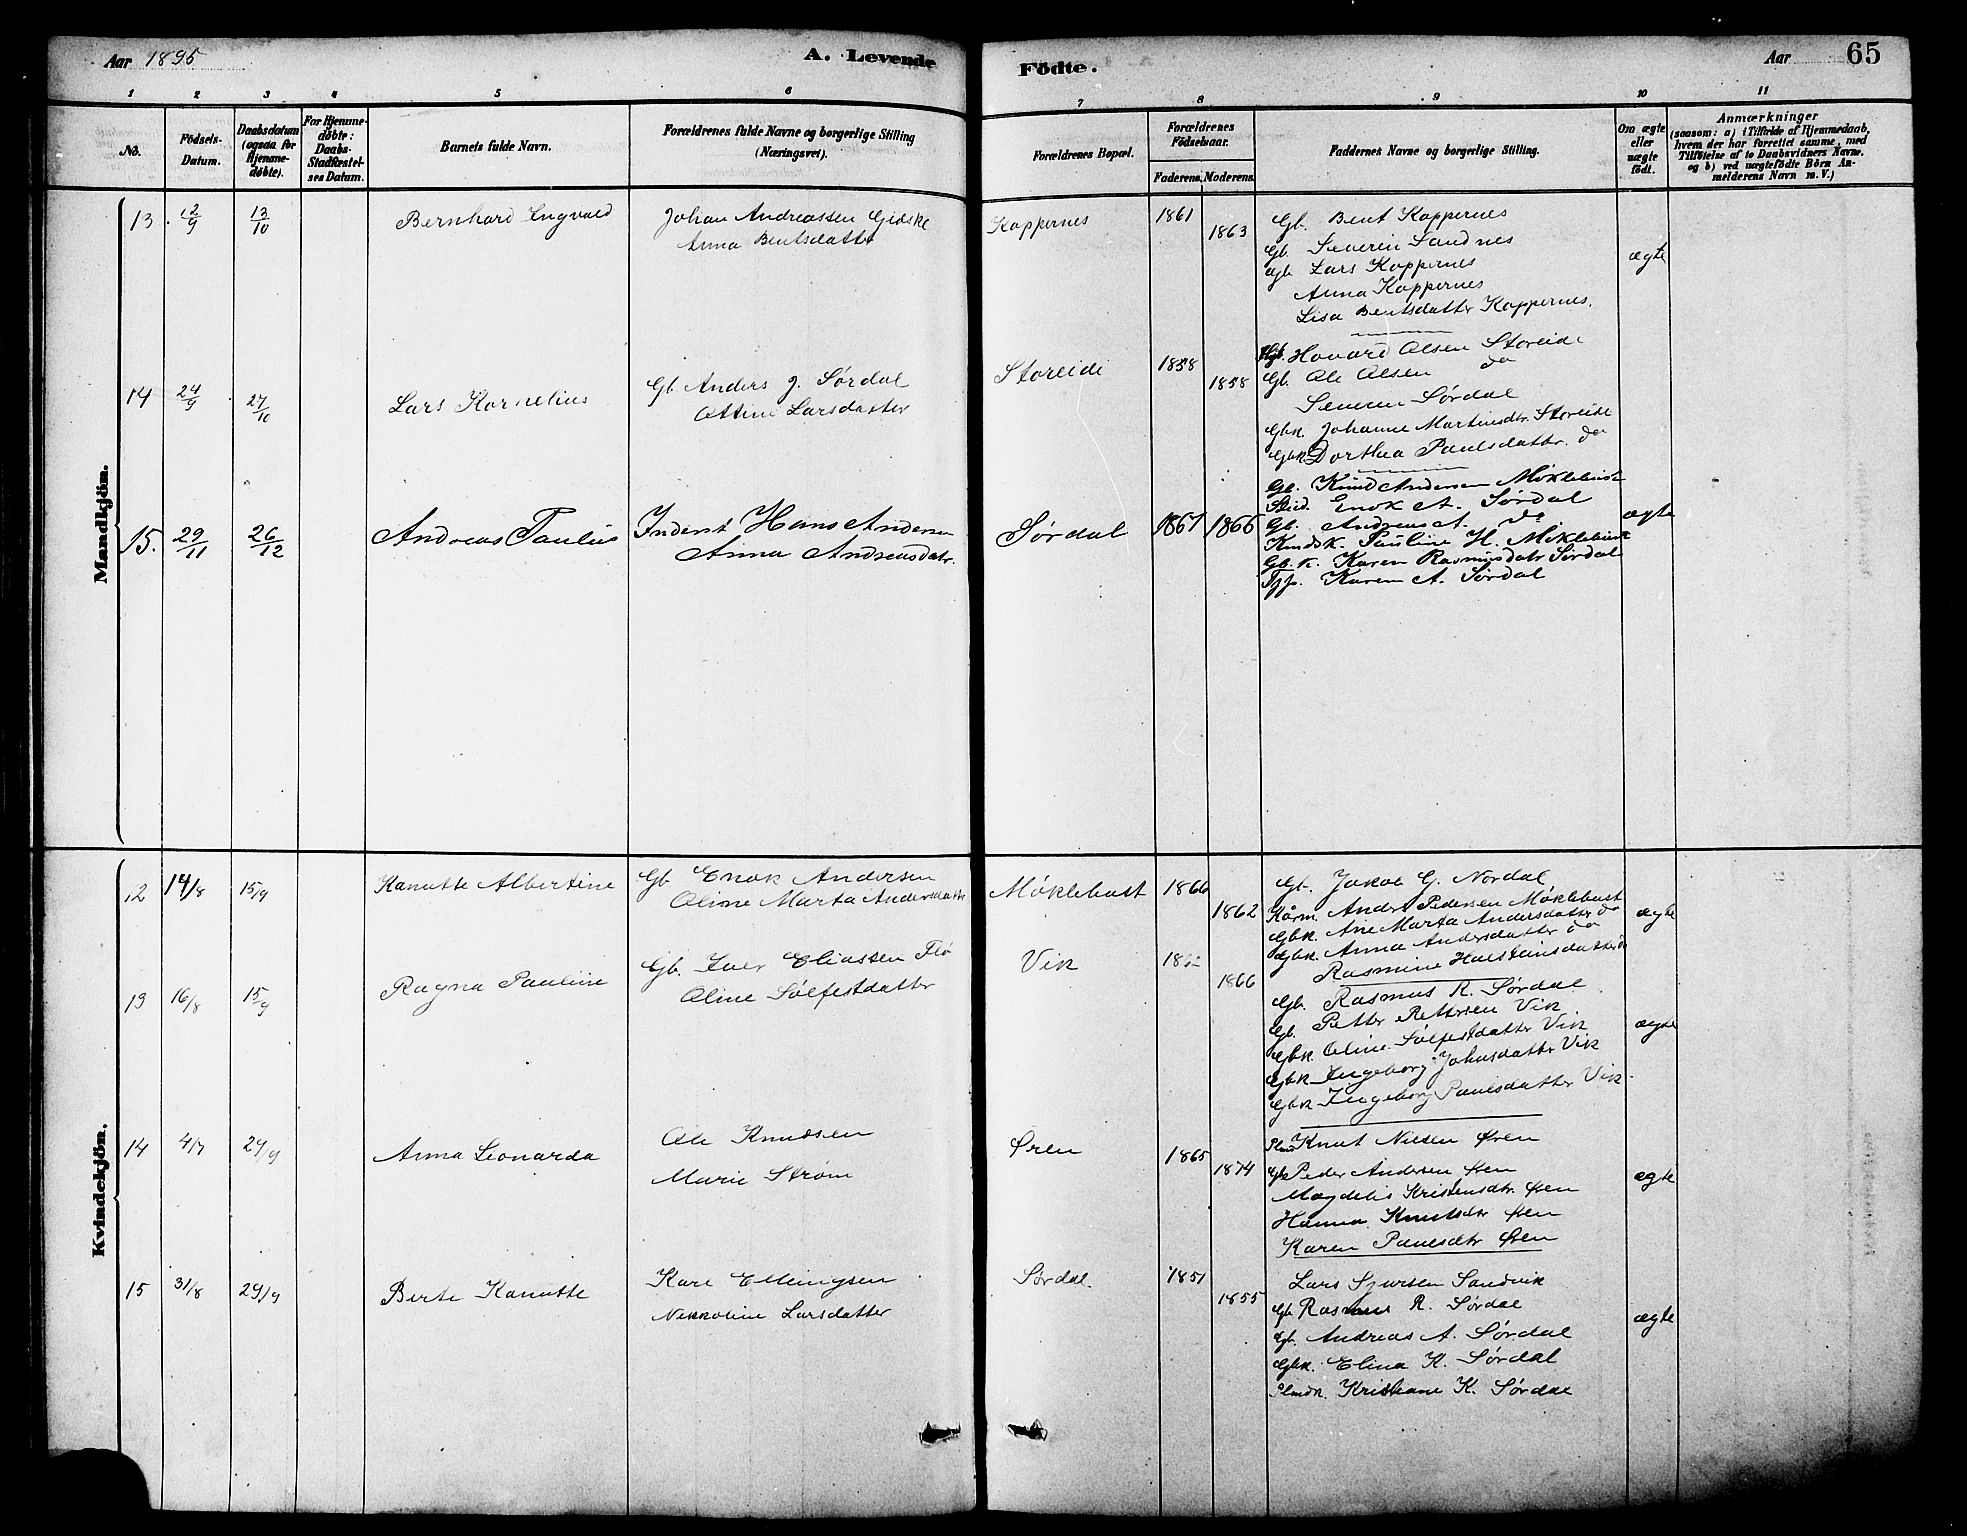 Aar 1895
A. Levende
Födte.
Aar
65
1 2 3 4 5 6 7 8 9 10 11
No.
Födsels-Datum.
Daabsdatum (ogsaa for Hjemmedøbte).
For Hjemmedøbte: Daabs-Stadfæstelses Datum.
Barnets fulde Navn.
Forældrenes fulde Navne og borgerlige Stilling (Næringsvei).
Forældrenes Bopæl.
Forældrenes Födselsaar.
Faderens. Moderens.
Faddernes Navne og borgerlige Stilling.
Om ægte eller uægte født.
Anmærkninger
(saasom: a) i Tilfælde af Hjemmedaab, hvem der har forrettet samme, med Tilföielse af to Daabsvidners Navne. og b) ved uægtefödte Börn Anmelderens Navn m. V.)
Mandkjön.
13 12/9 13/10 Bernhard Ingvald
Johan Andreassen Gidske
Anna Bentsdatter
Koppernes 1861 1863
Gb. Bent Koppernes
Gb. Severin Sandnes
Gb. Lars Koppernes
Anna Koppernes
Lisa Bentsdatter Koppernes.
ægte
14 24/9 27/10 Lars Kornelius
Gb. Anders J. Sørdal
Ottine Larsdatter
Storeide 1858 1858
Hovard Olsen Storeide
Gb. Ole Olsen do
Severin Sørdal
Gbk. Johanne Martinsdtr. Storeide
Gbk. Dorthea Paulsdattr. do
15. 29/11 26/12 Andreas Paulius
Inderst Hans Andersen
Anna Andreasdatr.
Sørdal 1867 1866
Gb. Knud Andersen Møklebust
Enok A. Sørdal
Gb. Andreas A. do
Pauline H. Møklebust
Gb. k. Karen Rasmusdatr Sørdal
Karen A. Sørdal
ægte
Kvindekjön.
12 14/8 15/9 Kanutte Albertine
Gb. Enok Andersen
Oline Marta Andersdatter
Møklebust 1866 1862
Gb. Jakob G. Nordal
Kårm. Anders Pedersen Møklebust
Gbk. Ane Marta Andersdatter do
Gbk. Anna Andersdatter do
Rasmine Halsteinsdatter do
ægte
13 16/8 15/9 Ragna Pauline
Gb. Iver Eliassen Flø
Oline Sølfestdatter
Vik 1866
Gb. Rasmus R. Sørdal
Gb. Petter Pettersen Vik
Gbk. Oline Sølfestdatter Vik
Gbk. Ingeborg Johnsdatter Vik
Gbk Ingeborg Paulsdatter Vik.
ægte
14 4/7 29/9 Anna Leonarda
Ole Knudsen
Marie Strøm
Øren 1865 1874
Knut Nilsen Øren
Peder Andersen Øren
Magdelis Kristensdtr. Øren
Hanna Knutsdtr Øren
Karen Paulsdtr Øren
ægte
15 31/8 29/9 Berte Kanutte
Kare Ellingsen
Nikkoline Larsdatter
Sørdal. 1851 1855
Lars Sjursen Sandvik
Gb Rasmus R. Sørdal
Gb. Andreas A. Sørdal
Gbk. Elina K. Sørdal
Kristiane K. Sørdal
ægte